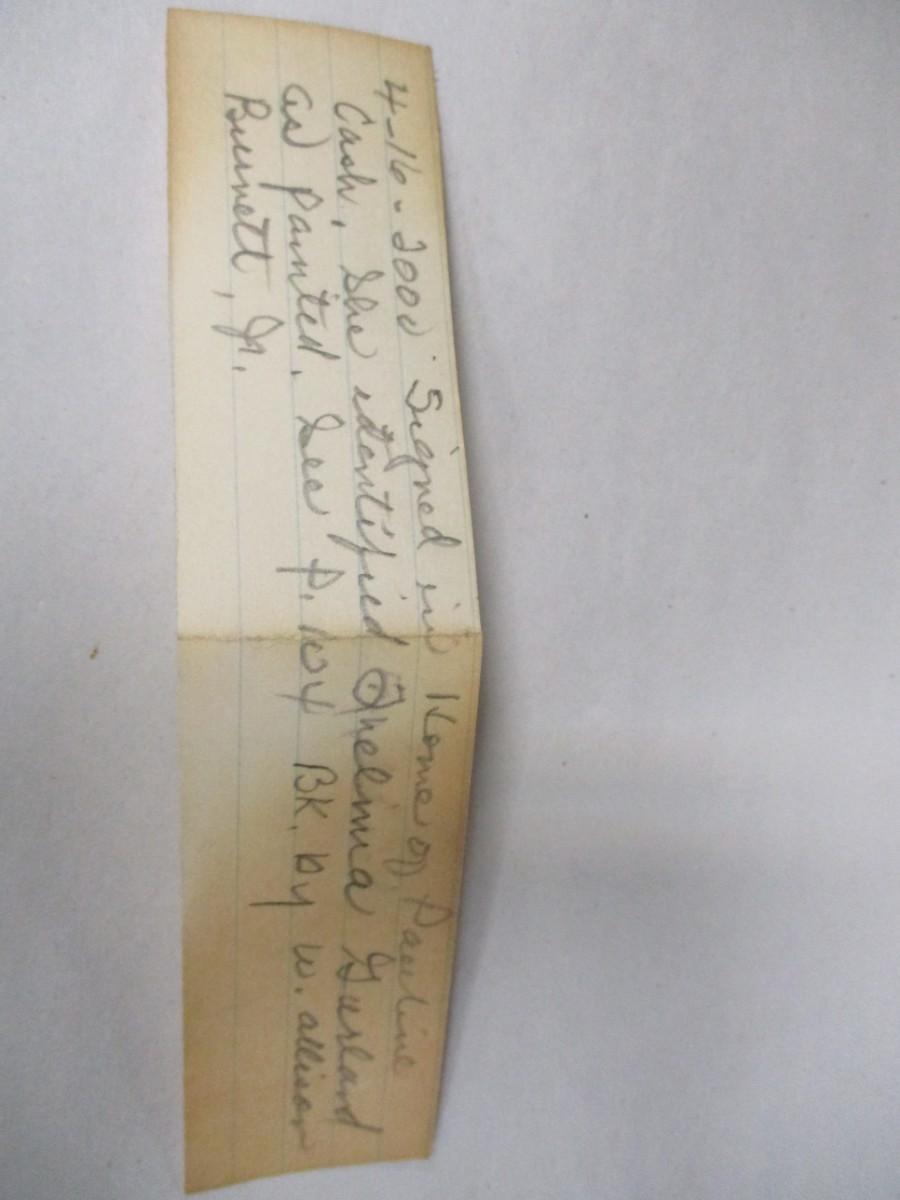 4-16-2000. Signed in Home of Pauline
Cash, She identified Thelma Garland
as painted. See p. 104 BK. by W. Allison
Burnett, Jr.